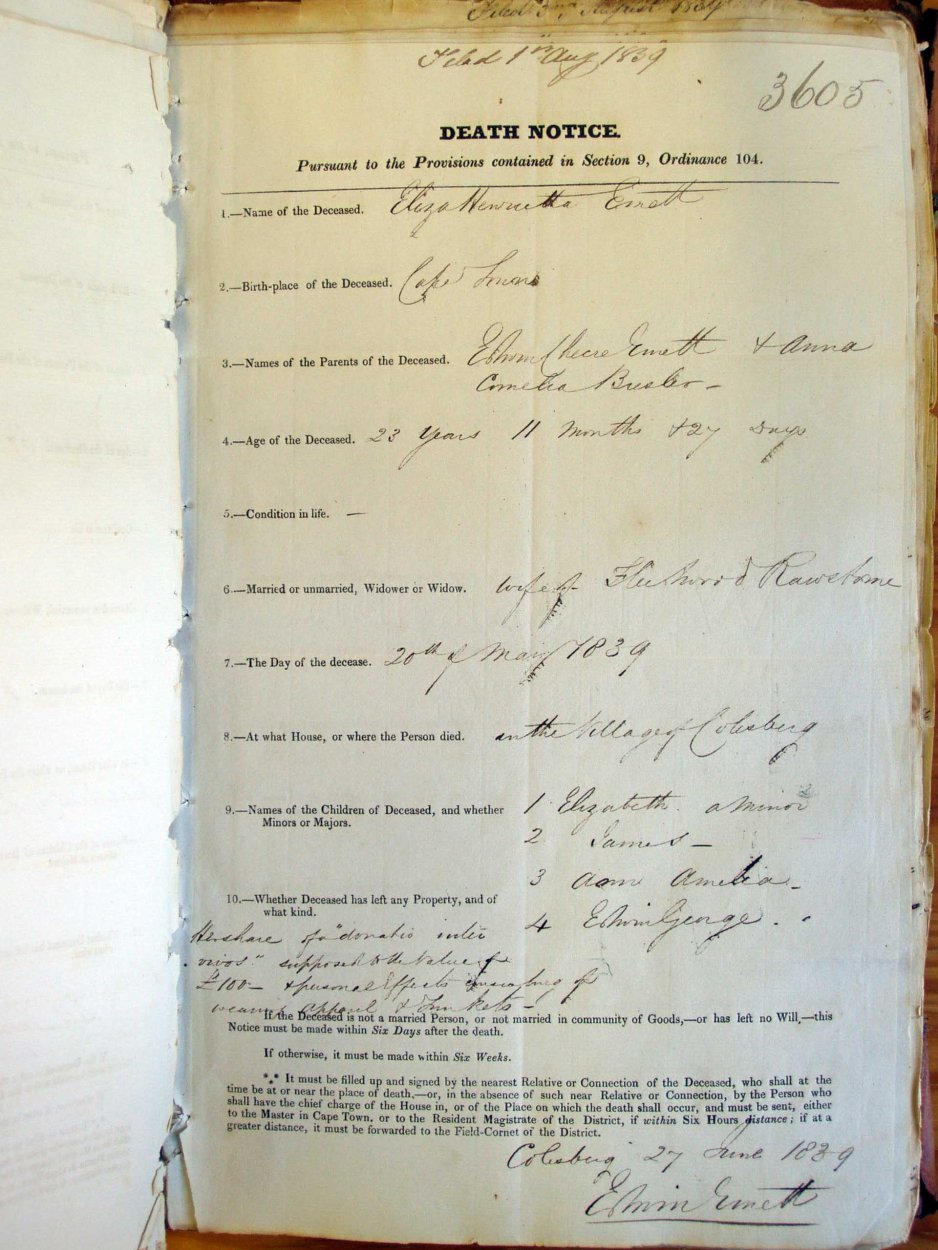 Filed 3rd August 1839
Filed 1st Aug 1839
3605
DEATH NOTICE.
Pursuant to the Provisions contained in Section 9, Ordinance 104.
1.—Name of the Deceased. Eliza Henrietta Emett
2.—Birth-place of the Deceased. Cape Town
3.—Names of the Parents of the Deceased. Edwin Cheere Emett & Anna
Cornelia Bresler —
4.—Age of the Deceased. 23 Years 11 Months & 27 Days
5.—Condition in life. —
6.—Married or unmarried, Widower or Widow. wife of Fleetwood Rawstorne
7.—The Day of the decease. 20th of May 1839
8.—At what House, or where the Person died. in the Village of Colesberg
9.—Names of the Children of Deceased, and whether
Minors or Majors.
1 Elizabeth. a Minor
2 James —
3 Anne Amelia —
4 Edwin George.
10.—Whether Deceased has left any Property, and of
what kind.
Her share of a "donatio inter
vivos" supposed to the Value of
£100— & personal Effects consisting of
wearing apparel & Trinkets —
If the Deceased is not a married Person, or not married in community of Goods,—or has left no Will,—this
Notice must be made within Six Days after the death.
If otherwise, it must be made within Six Weeks.
*** It must be filled up and signed by the nearest Relative or Connection of the Deceased, who shall at the
time be at or near the place of death,—or, in the absence of such near Relative or Connection, by the Person who
shall have the chief charge of the House in, or of the Place on which the death shall occur, and must be sent, either
to the Master in Cape Town, or to the Resident Magistrate of the District, if within Six Hours distance; if at a
greater distance, it must be forwarded to the Field-Cornet of the District.
Colesberg 27 June 1839
Edwin Emett